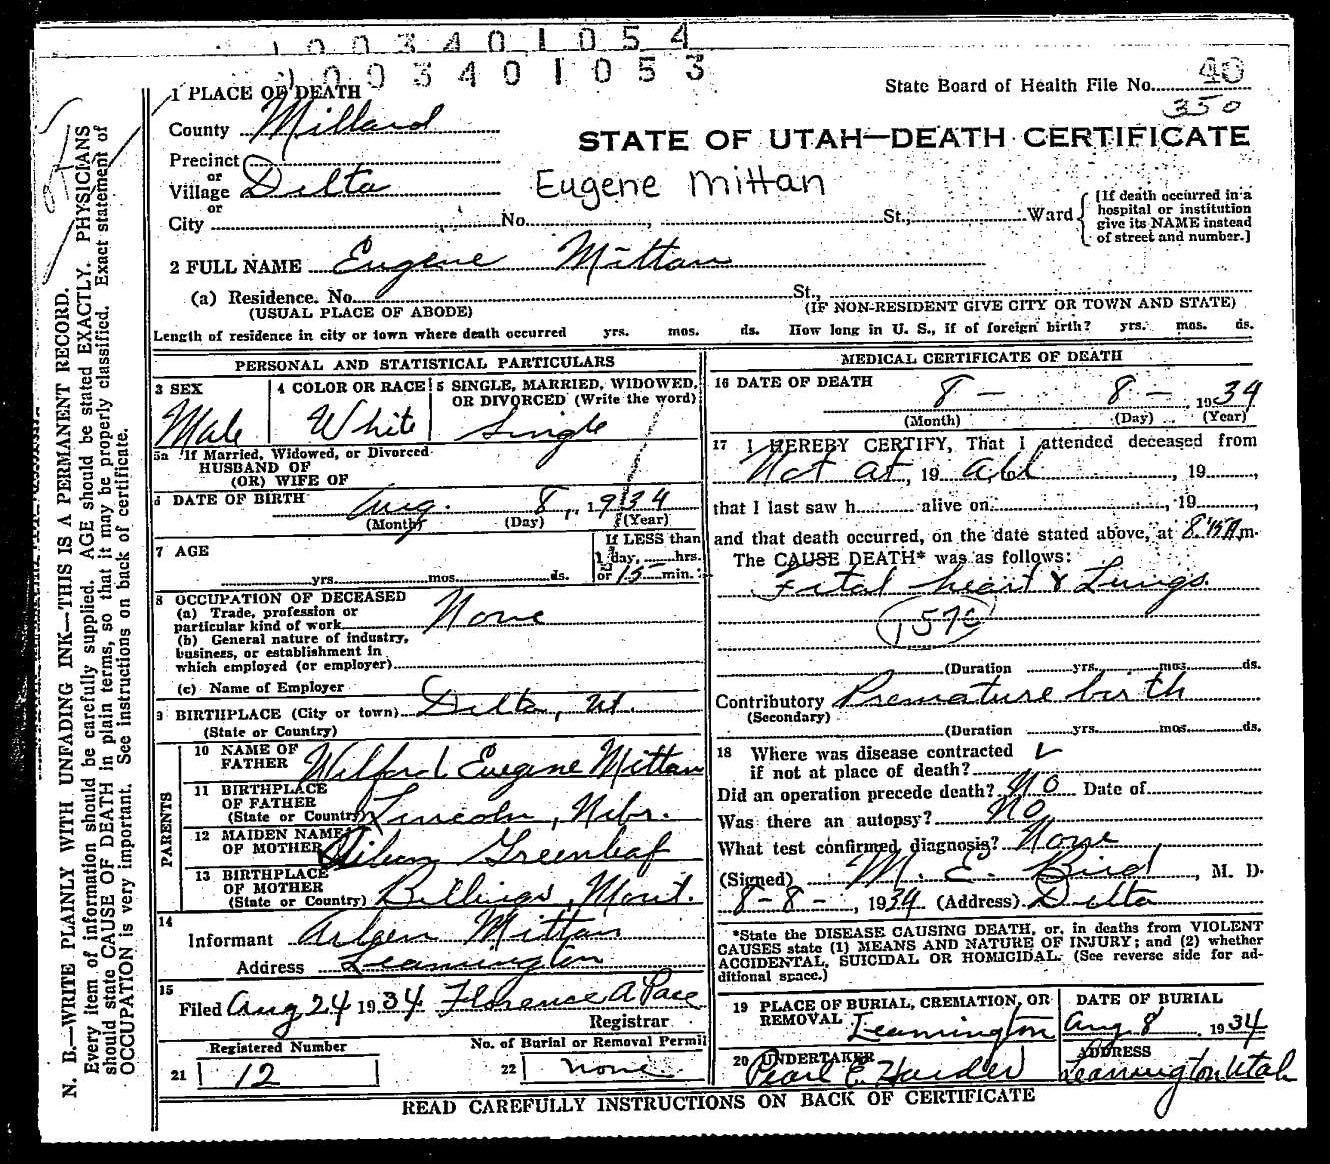 1003401054
1003401053
1 PLACE OF DEATH
State Board of Health File No. 40
350
County Millard
STATE OF UTAH—DEATH CERTIFICATE
Precinct
or
Village Delta
Eugene Mittan
or
City No. St., Ward
[If death occurred in a
hospital or institution
give its NAME instead
of street and number.]
2 FULL NAME Eugene Mittan
(a) Residence. No. St.,
(USUAL PLACE OF ABODE) (IF NON-RESIDENT GIVE CITY OR TOWN AND STATE)
Length of residence in city or town where death occurred yrs. mos. ds. How long in U. S., if of foreign birth? yrs. mos. ds.
PERSONAL AND STATISTICAL PARTICULARS
3 SEX
Male
4 COLOR OR RACE
White
5 SINGLE, MARRIED, WIDOWED,
OR DIVORCED (Write the word)
Single
5a If Married, Widowed, or Divorced
HUSBAND OF
(OR) WIFE OF
6 DATE OF BIRTH Aug. 8, 1934
(Month) (Day) (Year)
7 AGE
yrs. mos. ds.
If LESS than
1 day, hrs.
or 15 min.
8 OCCUPATION OF DECEASED
(a) Trade, profession or
particular kind of work None
(b) General nature of industry,
business, or establishment in
which employed (or employer)
(c) Name of Employer
9 BIRTHPLACE (City or town) Delta, Ut.
(State or Country)
PARENTS
10 NAME OF
FATHER Wilford Eugene Mittan
11 BIRTHPLACE
OF FATHER
(State or Country) Lincoln, Nebr.
12 MAIDEN NAME
OF MOTHER Greenleaf
13 BIRTHPLACE
OF MOTHER
(State or Country) Billings, Mont.
14
Informant Arleen Mittan
Address Leamington
15
Filed Aug 24 1934 Florence A Pace
Registrar
Registered Number
21 12
No. of Burial or Removal Permit
22 none
MEDICAL CERTIFICATE OF DEATH
16 DATE OF DEATH 8 - 8 - 1934
(Month) (Day) (Year)
17 I HEREBY CERTIFY, That I attended deceased from
Not at, 19 All, 19,
that I last saw h alive on, 19,
and that death occurred, on the date stated above, at 8:15 A m.
The CAUSE DEATH* was as follows:
Fital heart & Lungs.
157c
(Duration yrs. mos. ds.
Contributory Premature birth
(Secondary)
(Duration yrs. mos. ds.
18 Where was disease contracted
if not at place of death?
Did an operation precede death? No Date of
Was there an autopsy? No
What test confirmed diagnosis? None
(Signed) M. E. Bird, M. D.
8-8-, 1934 (Address) Delta
*State the DISEASE CAUSING DEATH, or, in deaths from VIOLENT
CAUSES state (1) MEANS AND NATURE OF INJURY; and (2) whether
ACCIDENTAL, SUICIDAL OR HOMICIDAL. (See reverse side for ad-
ditional space.)
19 PLACE OF BURIAL, CREMATION, OR
REMOVAL Leamington
DATE OF BURIAL
Aug. 8 1934
20 UNDERTAKER
Pearl E. Harder
ADDRESS
Leamington Utah
READ CAREFULLY INSTRUCTIONS ON BACK OF CERTIFICATE
N. B.—WRITE PLAINLY WITH UNFADING INK—THIS IS A PERMANENT RECORD.
Every item of information should be carefully supplied. AGE should be stated EXACTLY. PHYSICIANS
should state CAUSE OF DEATH in plain terms, so that it may be properly classified. Exact statement of
OCCUPATION is very important. See instructions on back of certificate.